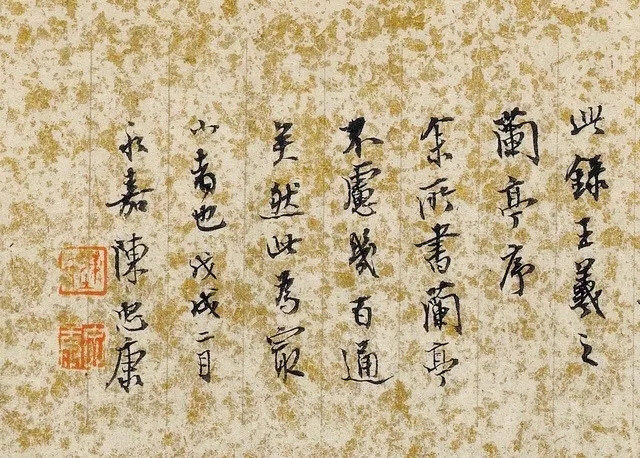 此錄王羲之
蘭亭序
余所書蘭亭
不慮幾百通
矣然此為最
小者也戊戌二月
永嘉陳忠康